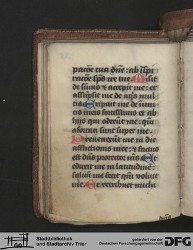 patiōe tua dn̄e: ab īspi
ratiōe sp̄s ire tue Misit
de sūmo et accepit me: et
assūpsit me de aquis mul
tis Eripuit me de inimi
cis meis fortissimis et ab
hijs qui oderūt me: qm̄
ofortati sunt super me
Preuenerūt me in die
afflictionis mee: et factus
est dn̄s protector meus Et
eduxit me in latitudinē:
saluū me fecit qm̄ voluit
me Et retribuet michi
Stadtbibliothek
und Stadtarchiv Trier
gefördert von der
Deutschen Forschungsgemeinschaft
DFG